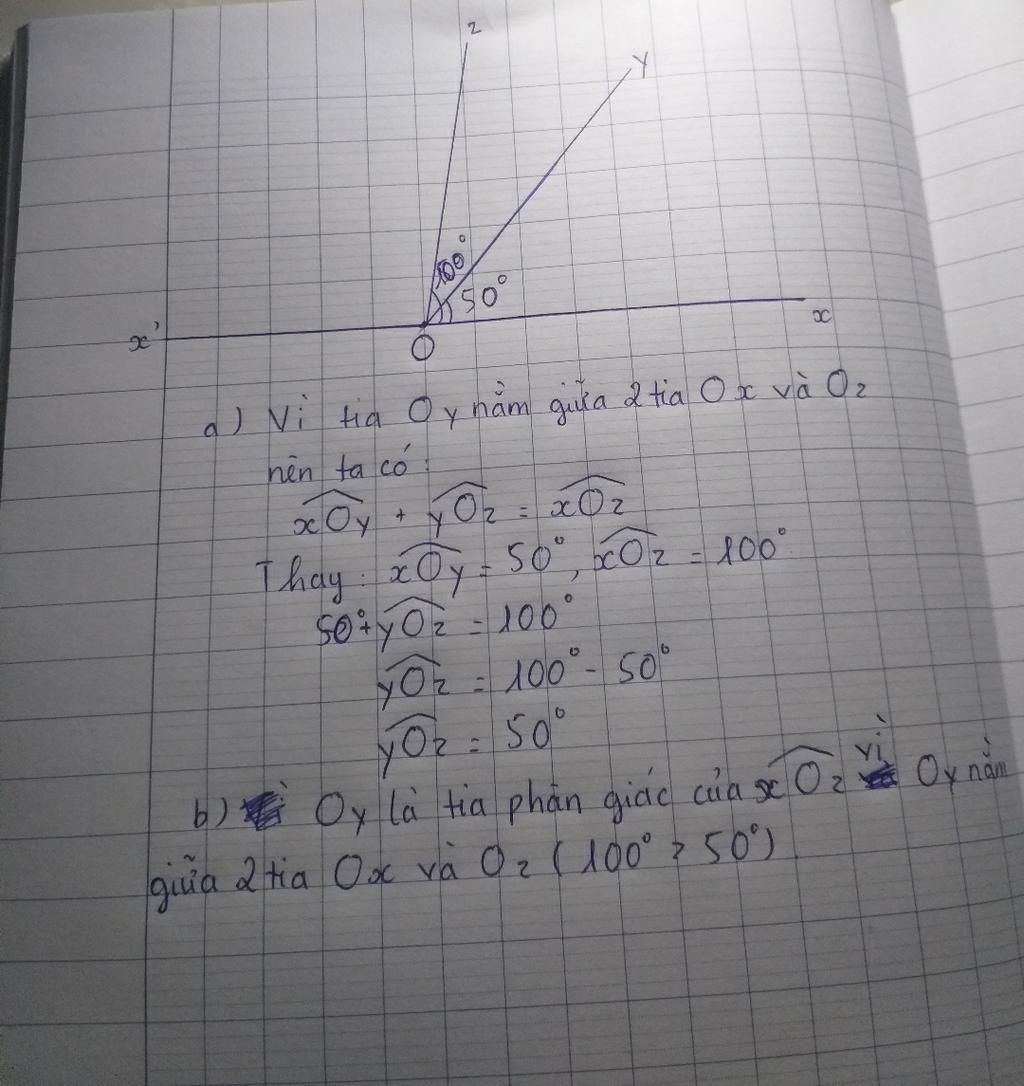 z
y
100°
50°
x'
x
O
a) Vì tia Oy nằm giữa 2 tia Ox và Oz
nên ta có:
xOy + yOz = xOz
Thay: xOy = 50°, xOz = 100°
50° + yOz = 100°
yOz = 100° - 50°
yOz = 50°
b) Oy là tia phân giác của xOz vì Oy nằm
giữa 2 tia Ox và Oz (100° > 50°)